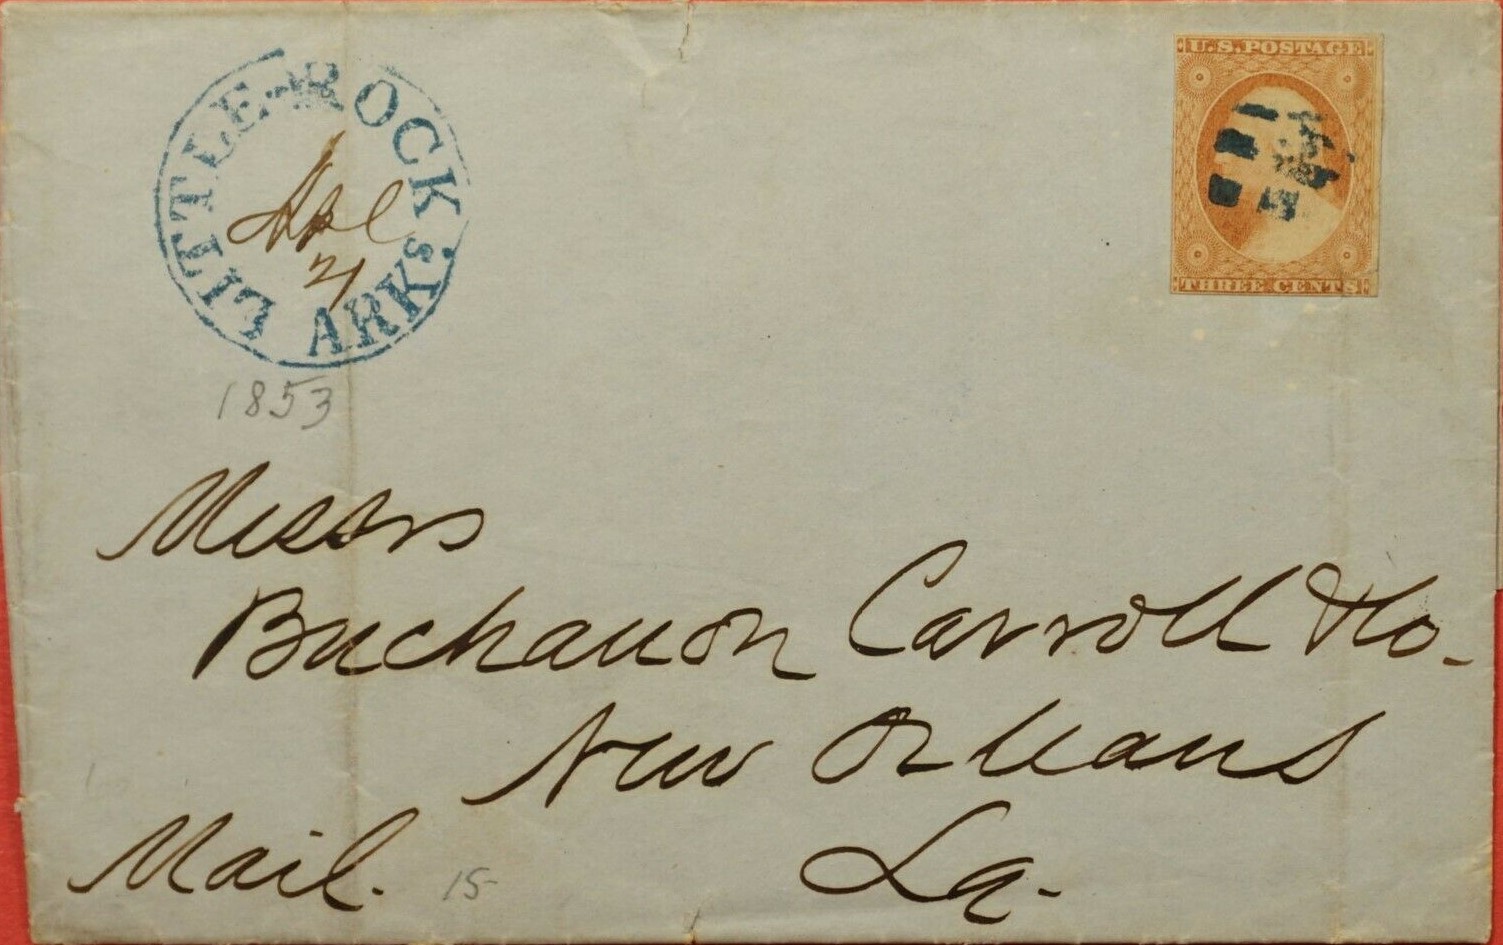 LITTLE-ROCK
ARKS.
Apl
21
1853
U.S. POSTAGE
THREE CENTS
Messrs
Buchanon Carroll & Co.
New Orleans
La.
Mail.
15